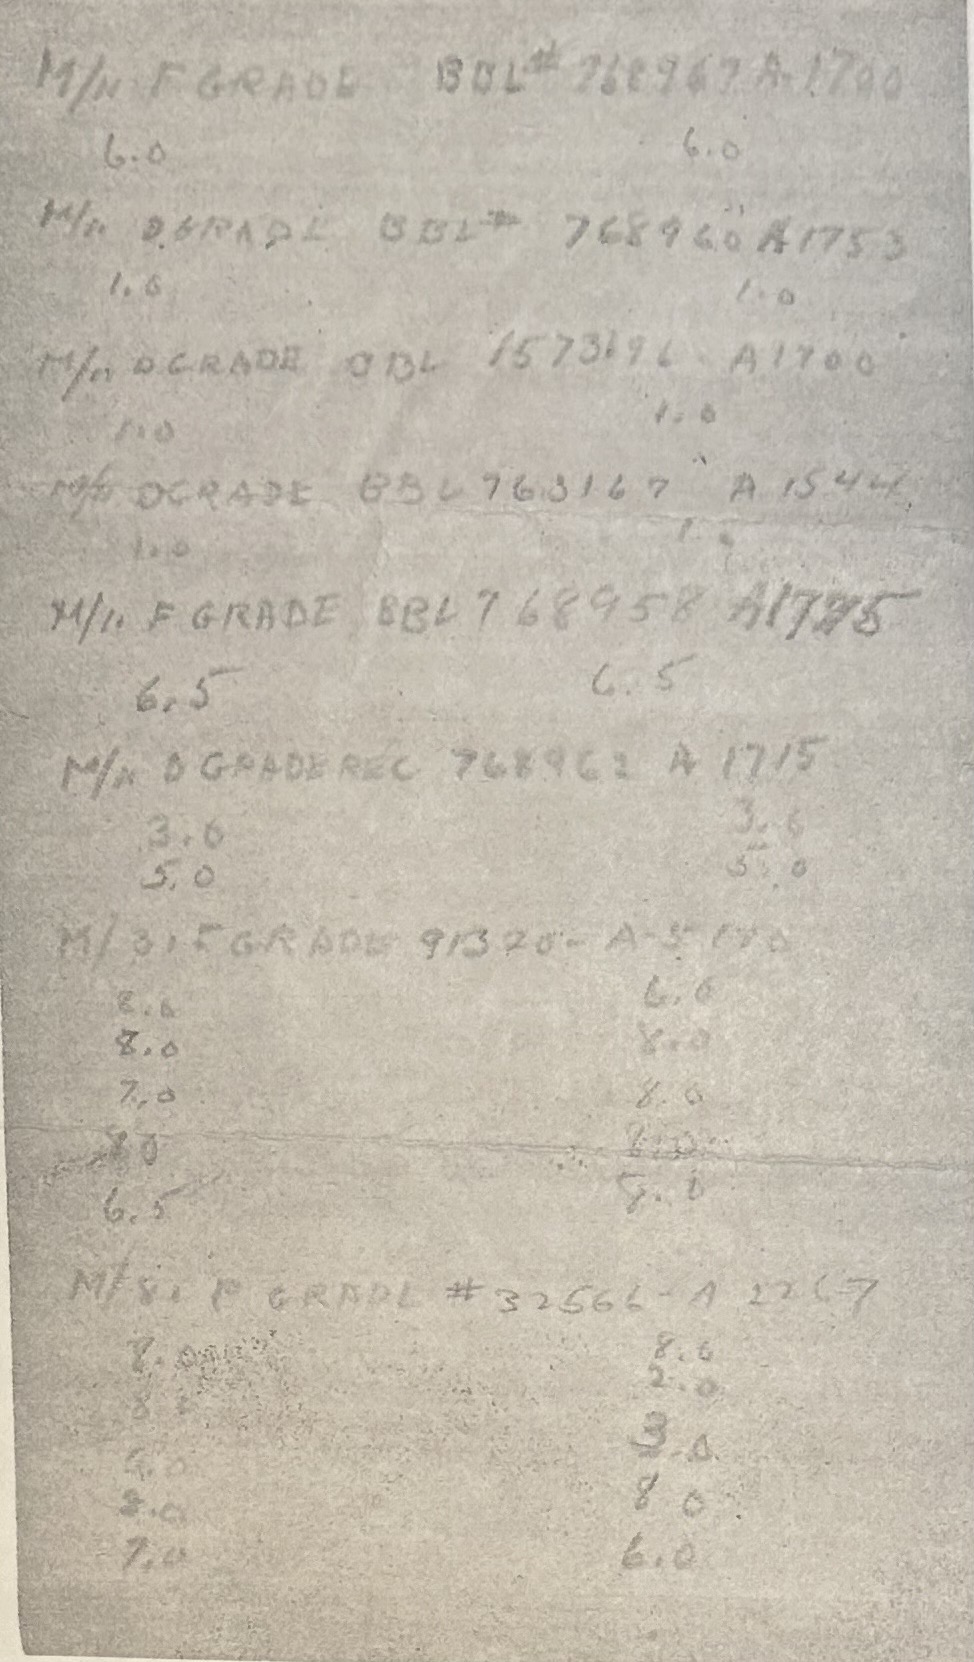 M/11 F GRADE BBL# 768967 A-1700
6.0 6.0
M/11 D.GRADE BBL# 768960 A1753
1.0 1.0
M/11 DGRADE BBL 1573196 A1700
1.0 1.0
M/11 DGRADE BBL 763167 A 1544
1.0
M/11 F GRADE BBL 768958
6.5 6.5
M/11 D GRADE REC 768962 A 1715
3.0 3.6
5.0 5.0
M/3. F GRADE 91320-
8.0 6.0
8.0 8.0
7.0 8.0
80 8.0
6.5
M/8. F GRADE #32566-A 2267
8.0 8.0
2.0
3.0
8.0 8 0
7.0 6.0